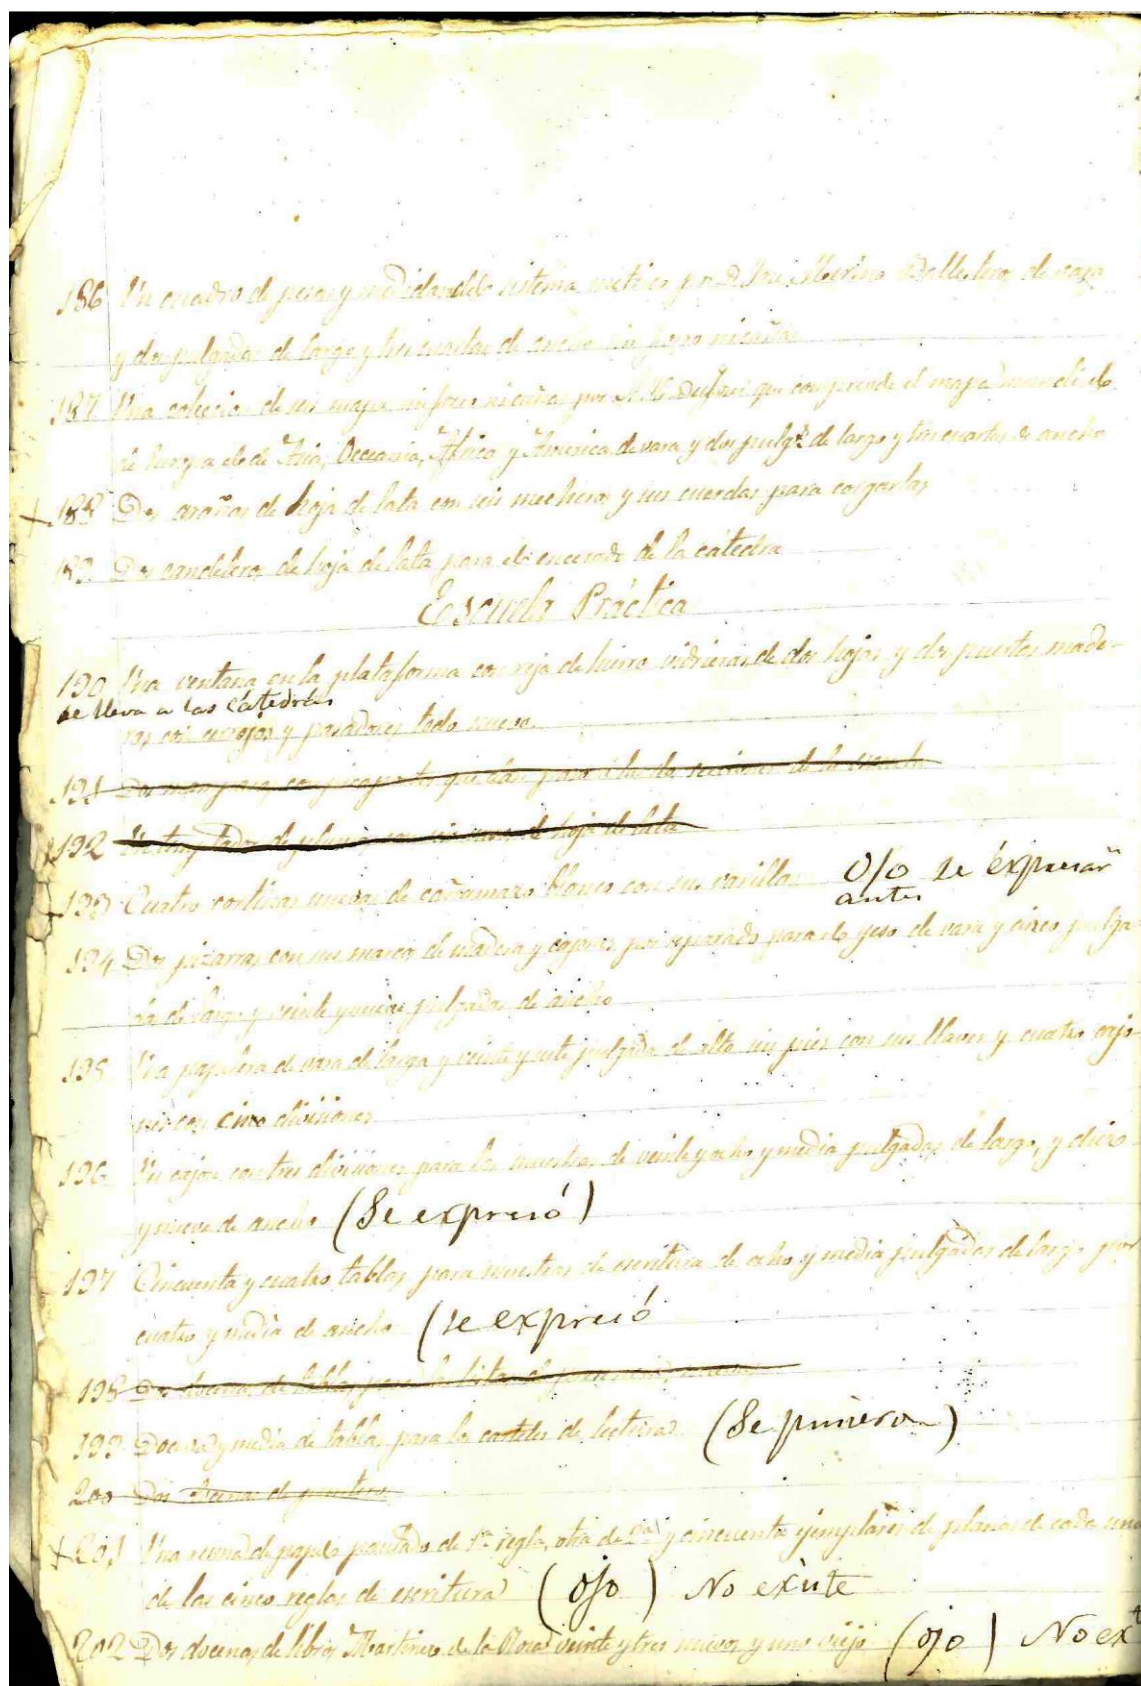 186 Un cuadro de pesas y medidas del sistema metrico por D. José Merino Ballesteros de vara
y dos pulgadas de largo y tres cuartas de ancho sin forro ni cañas
187 Una coleccion de seis mapas sin forro ni cañas por que comprende el mapa mundi el
de Europa el de Asia, Occeania, Africa y America de vara y dos pulg.s de largo y tres cuartas de ancho
+ 188 Dos arañas de hoja de lata con seis mecheros y sus cuerdas para colgarlas
189 Dos candeleros de hoja de lata para el encerado de la cátedra
Escuela Práctica
190 Una ventana en la plataforma con reja de hierro vidrieras de dos hojas y dos puertas made-
se lleva a las cátedras
ras con cerrojos y pasadores todo nuevo
191 Dos mamparas con picaportes que dan paso á las dos secciones de la escuela
192 de hoja de lata
193 Cuatro cortinas nuevas de cañamazo blanco con sus varillas Ojo se expresarn
antes
194 Dos pizarras con sus marcos de madera y cajones por separado para el yeso de vara y cinco pulga-
das de largo y veinte y nueve pulgadas de ancho
195 Una papelera de vara de larga y veinte y siete pulgadas de alto sin pies con sus llaves y cuatro cajo-
nes con cinco divisiones
196 Un cajon con tres divisiones para las muestras de veinte y ocho y media pulgadas de largo, y diez
y nueve de ancho (Se expresó)
197 Cincuenta y cuatro tablas para muestras de escritura de ocho y media pulgadas de largo por
cuatro y media de ancho (se expresó
198 Dos docenas de tablas para las listas
199 Docena y media de tablas para los carteles de lectura (Se pusieron)
200 Dos docenas de punteros
+ 201 Una resma de papel pautado de 1.a regla, otra de y cincuenta ejemplares de planas de cada una
de las cinco reglas de escritura (ojo) No existe
202 Dos docenas de libros Martinez de la Rosa veinte y tres nuevos y uno viejo (ojo) No ext